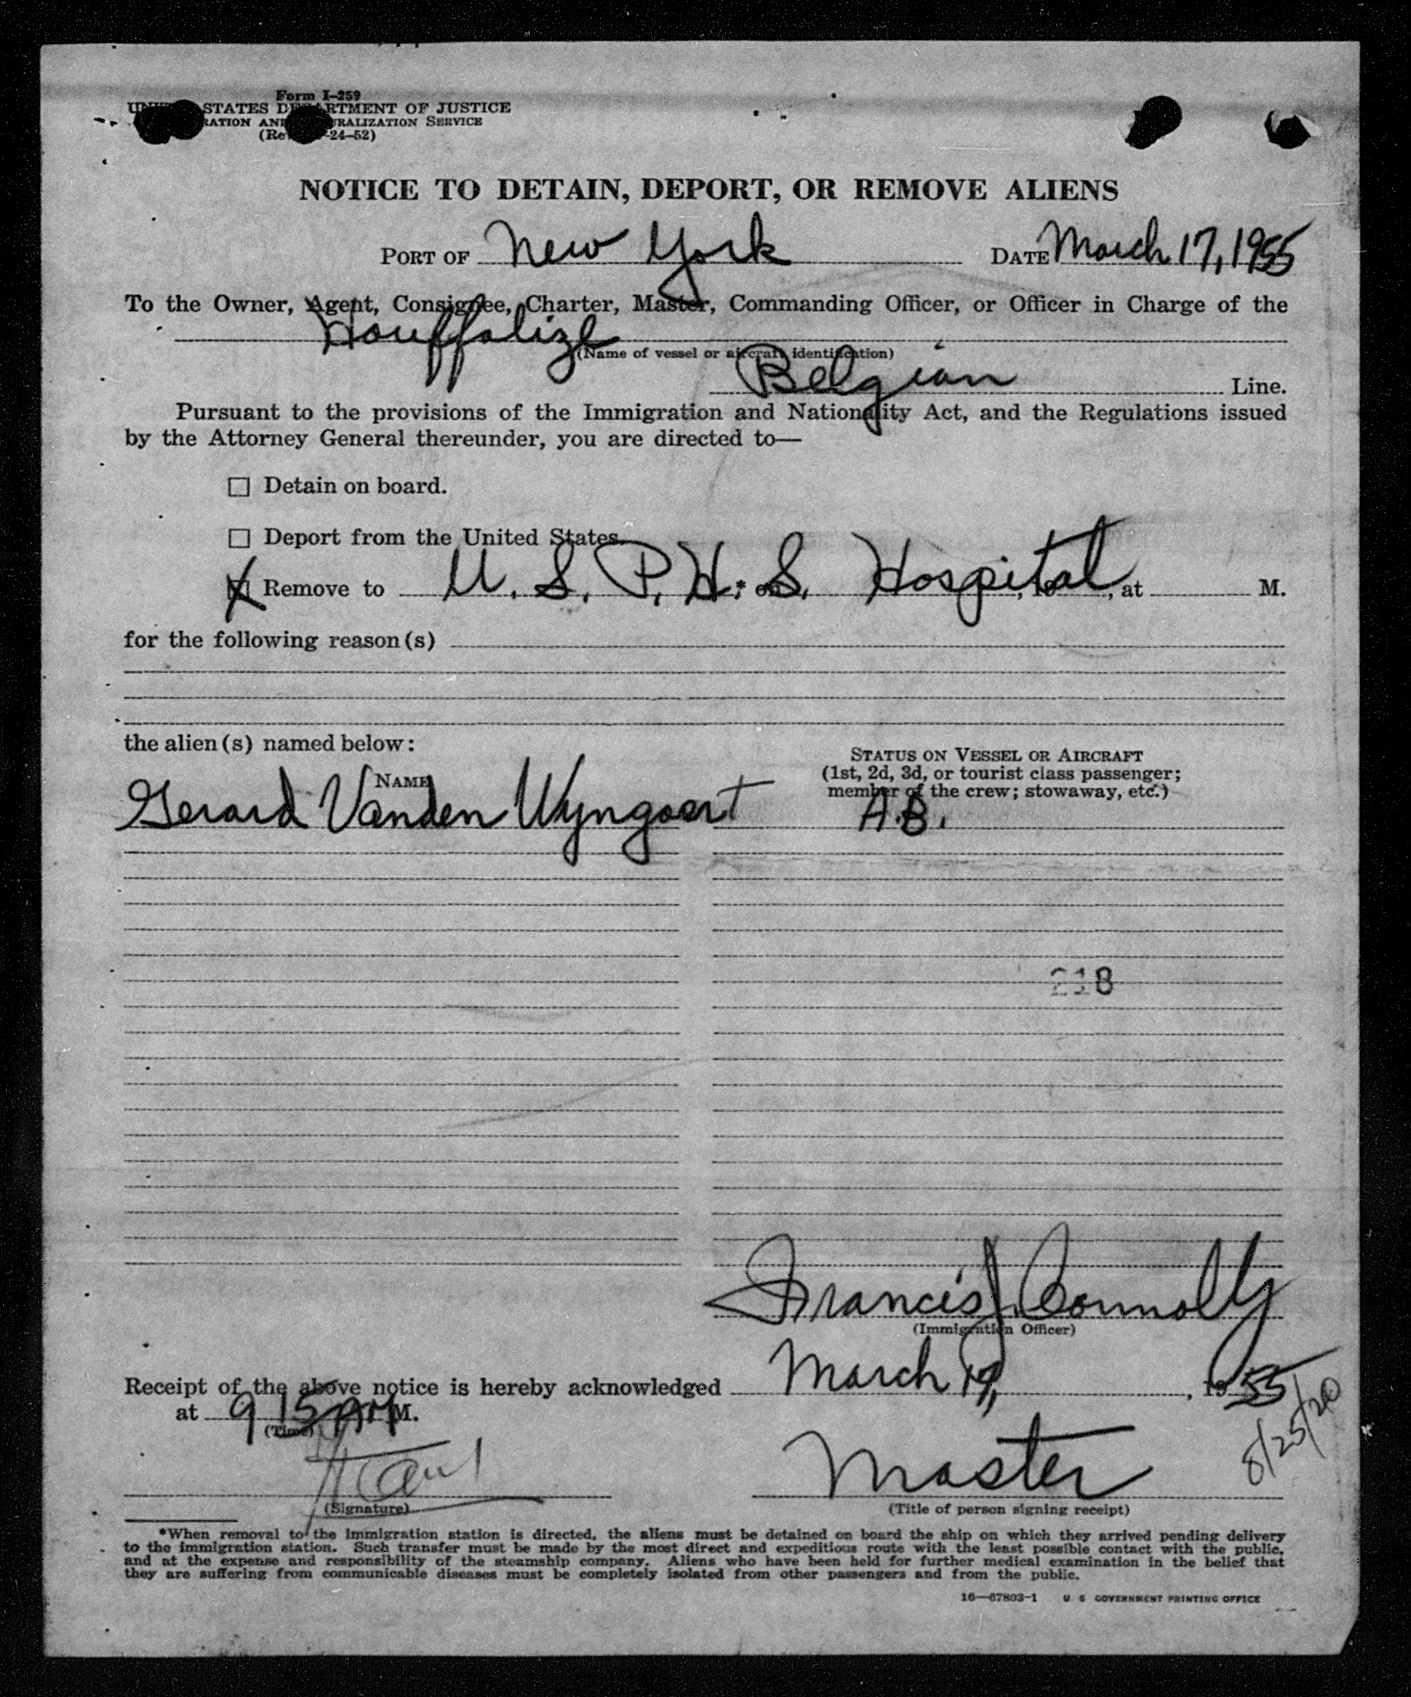 Form I-259
STATES DEPARTMENT OF JUSTICE
RATION AND NATURALIZATION SERVICE
24-52)
NOTICE TO DETAIN, DEPORT, OR REMOVE ALIENS
PORT OF New York DATE March 17, 1955
To the Owner, Agent, Consignee, Charter, Master, Commanding Officer, or Officer in Charge of the
Houffalize
(Name of vessel or aircraft identification)
Belgian Line.
Pursuant to the provisions of the Immigration and Nationality Act, and the Regulations issued
by the Attorney General thereunder, you are directed to—
☐ Detain on board.
☐ Deport from the United States.
X Remove to U. S. P. H. S. Hospital,* on , 19 , at M.
for the following reason(s)
the alien(s) named below:
NAME
STATUS ON VESSEL OR AIRCRAFT
(1st, 2d, 3d, or tourist class passenger;
member of the crew; stowaway, etc.)
Gerard Vanden Wyngaert A.B.
218
Francis J. Connolly
(Immigration Officer)
Receipt of the above notice is hereby acknowledged March 17, , 1955
at 9 15 AM M.
(Time)
8/25/20
Master
(Signature) (Title of person signing receipt)
*When removal to the immigration station is directed, the aliens must be detained on board the ship on which they arrived pending delivery
to the immigration station. Such transfer must be made by the most direct and expeditious route with the least possible contact with the public,
and at the expense and responsibility of the steamship company. Aliens who have been held for further medical examination in the belief that
they are suffering from communicable diseases must be completely isolated from other passengers and from the public.
16—67803-1 U. S. GOVERNMENT PRINTING OFFICE